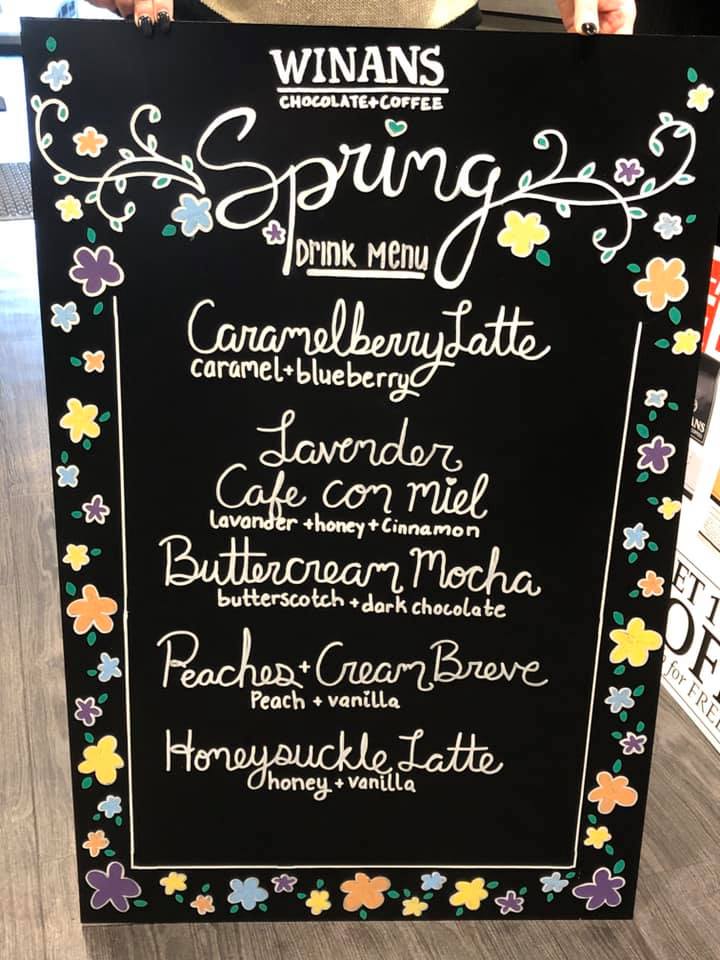 WINANS
CHOCOLATE+COFFEE
Spring
Drink Menu
Caramelberry Latte
caramel+blueberry
Lavender
Cafe con miel
lavander +honey+Cinnamon
Buttercream Mocha
butterscotch +dark chocolate
Peaches+Cream Breve
Peach + vanilla
Honeysuckle Latte
honey + vanilla
for FREE